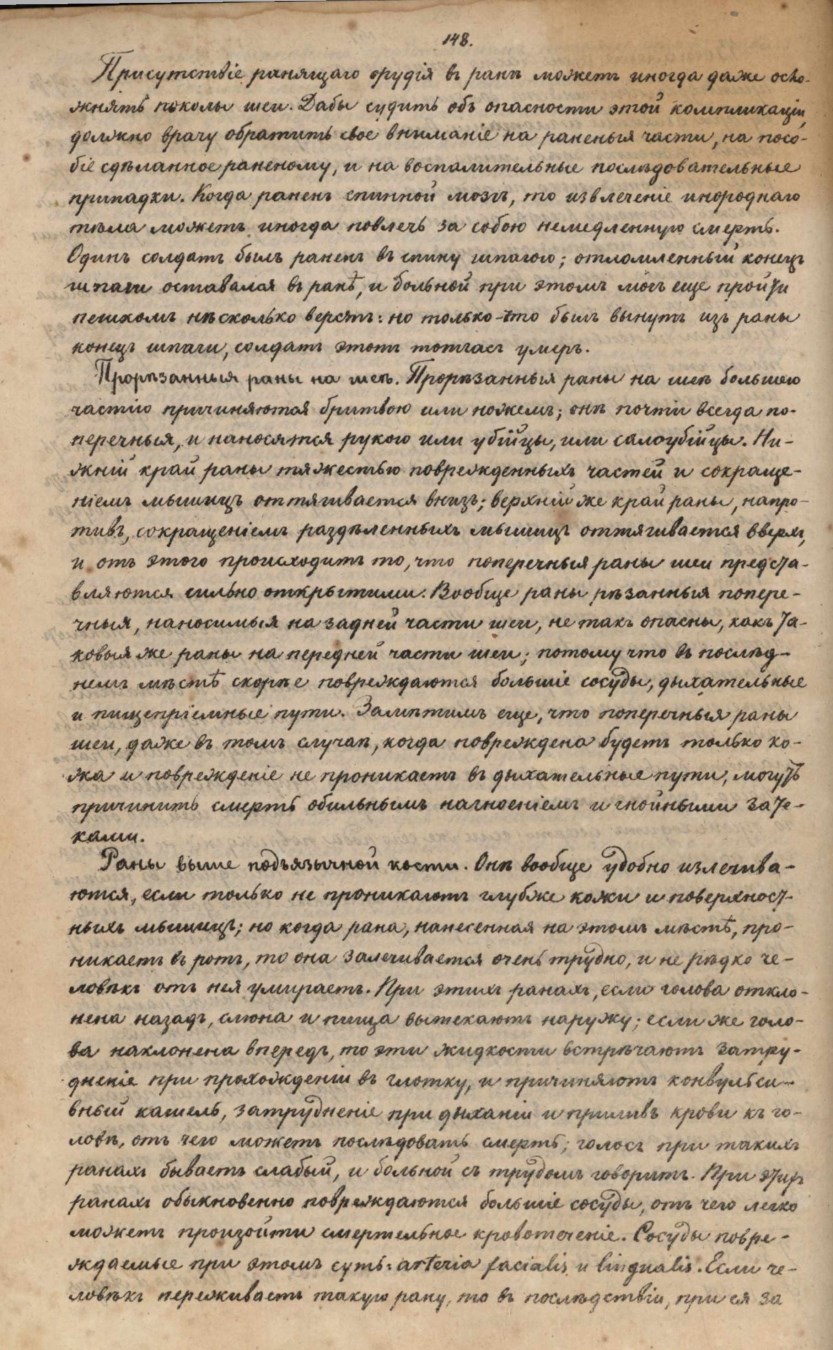 148.
Присутствіе ранящаго орудія въ ранѣ можетъ иногда даже осло-
жнять уколы шеи. Дабы судить объ опасности этой компликаціи
должно врачу обратить свое вниманіе на раненыя части, на посо-
біе сдѣланное раненому, и на воспалительные послѣдовательные
припадки. Когда раненъ спинной мозгъ, то извлеченіе инороднаго
тѣла можетъ иногда повлечь за собою немедленную смерть.
Одинъ солдатъ былъ раненъ въ спину шпагою; отломленный конецъ
шпаги оставался въ ранѣ, и больной при этомъ могъ еще пройти
пешкомъ нѣсколько верстъ: но только-что былъ вынутъ изъ раны
конецъ шпаги, солдатъ этотъ тотчасъ умеръ.
Прорѣзанныя раны на шеѣ. Прорѣзанныя раны на шеѣ большею
частію причиняются бритвою или ножемъ; онѣ почти всегда по-
перечныя, и наносятся рукою или убійцы, или самоубійцы. Ни-
жній край раны тяжестью поврежденныхъ частей и сокраще-
ніемъ мышицъ оттягивается внизъ; верхній же край раны, напро-
тивъ, сокращеніемъ раздѣленныхъ мышицъ оттягивается вверхъ,
и отъ этого происходитъ то, что поперечныя раны шеи предста-
вляются сильно открытыми. Вообще раны рѣзанныя попере-
чныя, наносимыя на задней части шеи, не такъ опасны, какъ та-
ковыя же раны на передней части шеи; потому что въ послѣд-
немъ мѣстѣ скорѣе повреждаются большіе сосуды, дыхательные
и пищепріемные пути. Замѣтимъ еще, что поперечныя раны
шеи, даже въ томъ случаѣ, когда повреждена будетъ только ко-
жа и поврежденіе не проникаетъ въ дыхательные пути, могутъ
причинить смерть обильнымъ нагноеніемъ и гнойными зате-
ками.
Раны выше подъязычной кости. Онѣ вообще удобно излечива-
ются, если только не проникаютъ глубже кожи и поверхност-
ныхъ мышицъ; но когда рана, нанесенная на этомъ мѣстѣ, про-
никаетъ въ ротъ, то она залечивается очень трудно, и не рѣдко че-
ловѣкъ отъ нея умираетъ. При этихъ ранахъ, если голова откло-
нена назадъ, слюна и пища вытекаютъ наружу; если же голо-
ва наклонена впередъ, то эти жидкости встрѣчаютъ затру-
дненіе при прохожденіи въ глотку, и причиняютъ конвульси-
вный кашель, затрудненіе при дыханіи и приливъ крови къ го-
ловѣ, отъ чего можетъ послѣдовать смерть; голосъ при такихъ
ранахъ бываетъ слабый, и больной съ трудомъ говоритъ. При этихъ
ранахъ обыкновенно повреждаются большіе сосуды, отъ чего легко
можетъ произойти смертельное кровотеченіе. Сосуды повре-
ждаемые при этомъ суть: arteria facialis и lingualis. Если че-
ловѣкъ переживаетъ такую рану, то въ послѣдствіи, при ея за